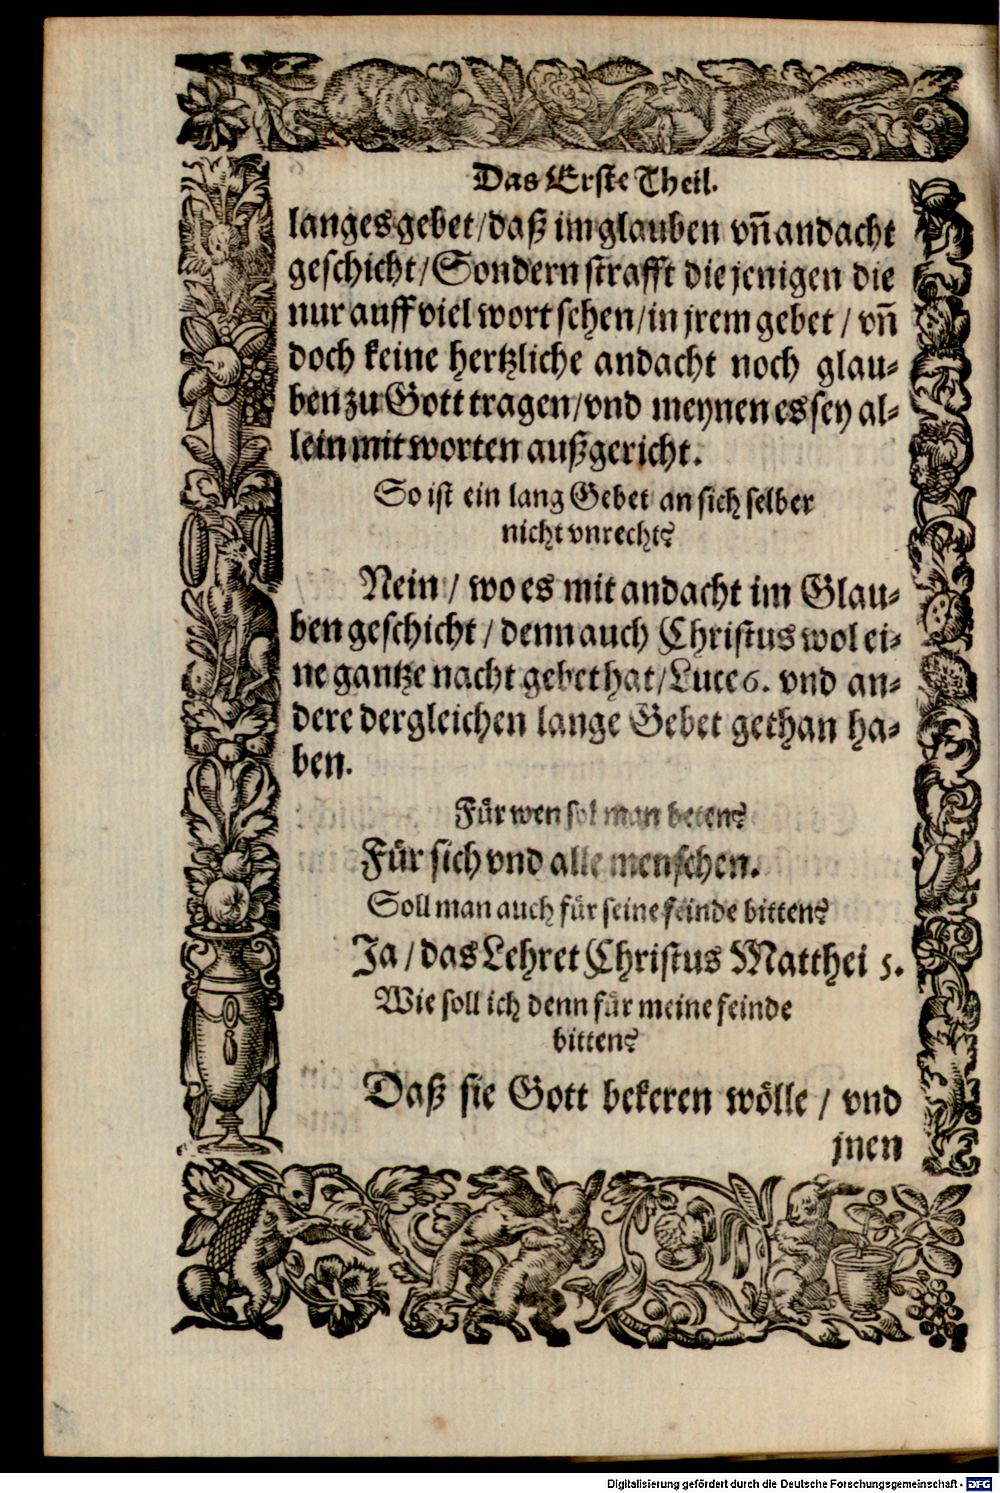 Das Erste Theil.
langes gebet/daß im glauben vñ andacht
geschicht/Sondern strafft die jenigen die
nur auff viel wort sehen/in jrem gebet / vñ
doch keine hertzliche andacht noch glau⸗
ben zu Gott tragen/vnd meynen es sey al⸗
lein mit worten außgericht.
So ist ein lang Gebet an sich selber
nicht vnrecht?
Nein / wo es mit andacht im Glau⸗
ben geschicht / denn auch Christus wol ei⸗
ne gantze nacht gebet hat/Luce 6. vnd an⸗
dere dergleichen lange Gebet gethan ha⸗
ben.
Für wen sol man beten?
Für sich vnd alle menschen.
Soll man auch für seine feinde bitten?
Ja / das Lehret Christus Matthei 5.
Wie soll ich denn für meine feinde
bitten?
Daß sie Gott bekeren wölle / vnd
jnen
Digitalisierung gefördert durch die Deutsche Forschungsgemeinschaft - DFG